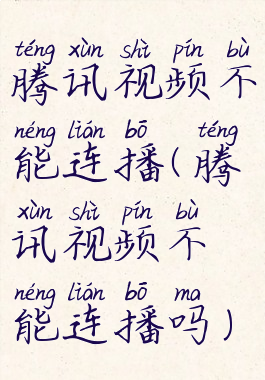 téng xùn shì pín bù
腾讯视频不
néng lián bō téng
能连播(腾
xùn shì pín bù
讯视频不
néng lián bō ma
能连播吗)